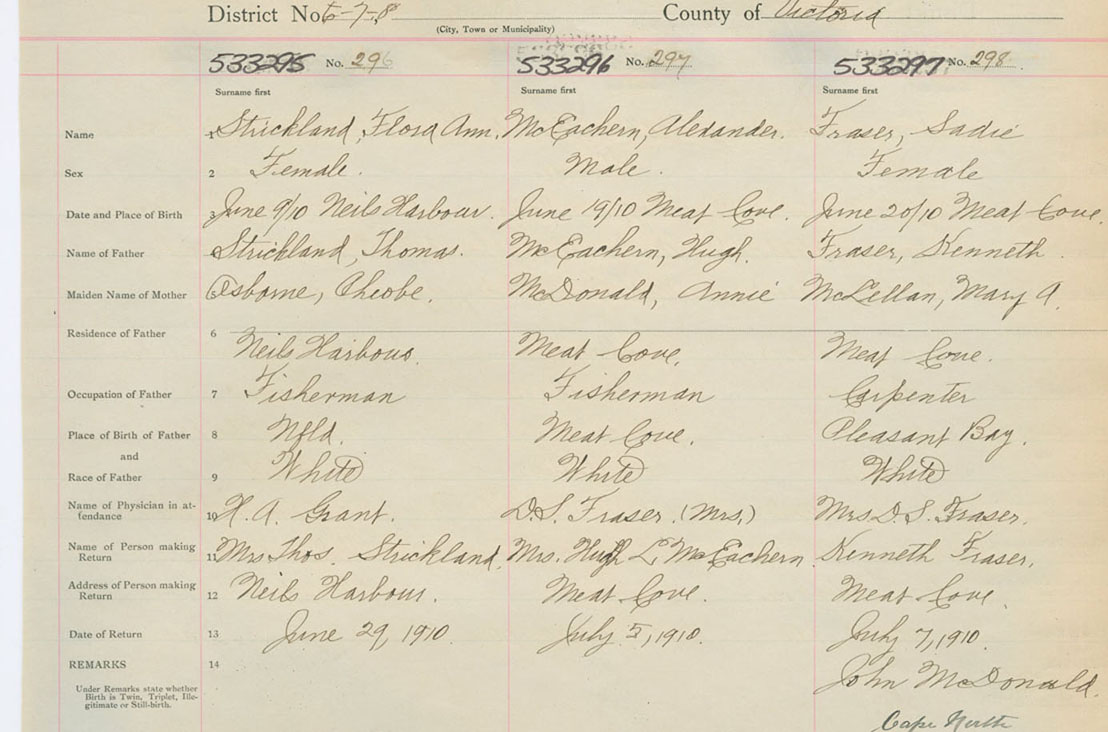 District No. 6-7-8 County of Victoria
(City, Town or Municipality)
533295 No. 296 533296 No. 297 533297 No. 298
Surname first Surname first Surname first
Name 1 Strickland, Flora Ann. McEachern, Alexander. Fraser, Sadie
Sex 2 Female. Male. Female
Date and Place of Birth June 9/10 Neils Harbour. June 19/10 Meat Cove. June 20/10 Meat Cove.
Name of Father Strickland, Thomas. McEachern, Hugh. Fraser, Kenneth.
Maiden Name of Mother 5 Osborne, Pheobe. McDonald, Annie McLellan, Mary A.
Residence of Father 6
Neils Harbour. Meat Cove. Meat Cove.
Occupation of Father 7 Fisherman Fisherman Carpenter
Place of Birth of Father 8 Nfld. Meat Cove. Pleasant Bay.
and
Race of Father 9 White White White
Name of Physician in at-
tendance 10 H. A. Grant. D.S. Fraser. (Mrs.) Mrs D. S. Fraser.
Name of Person making
Return 11 Mrs Thos. Strickland. Mrs. Hugh L McEachern Kenneth Fraser.
Address of Person making
Return 12 Neils Harbour. Meat Cove. Meat Cove.
Date of Return 13 June 29, 1910. July 5, 1910. July 7, 1910.
REMARKS 14
John McDonald.
Under Remarks state whether
Birth is Twin, Triplet, Ille-
gitimate or Still-birth.
Cape North